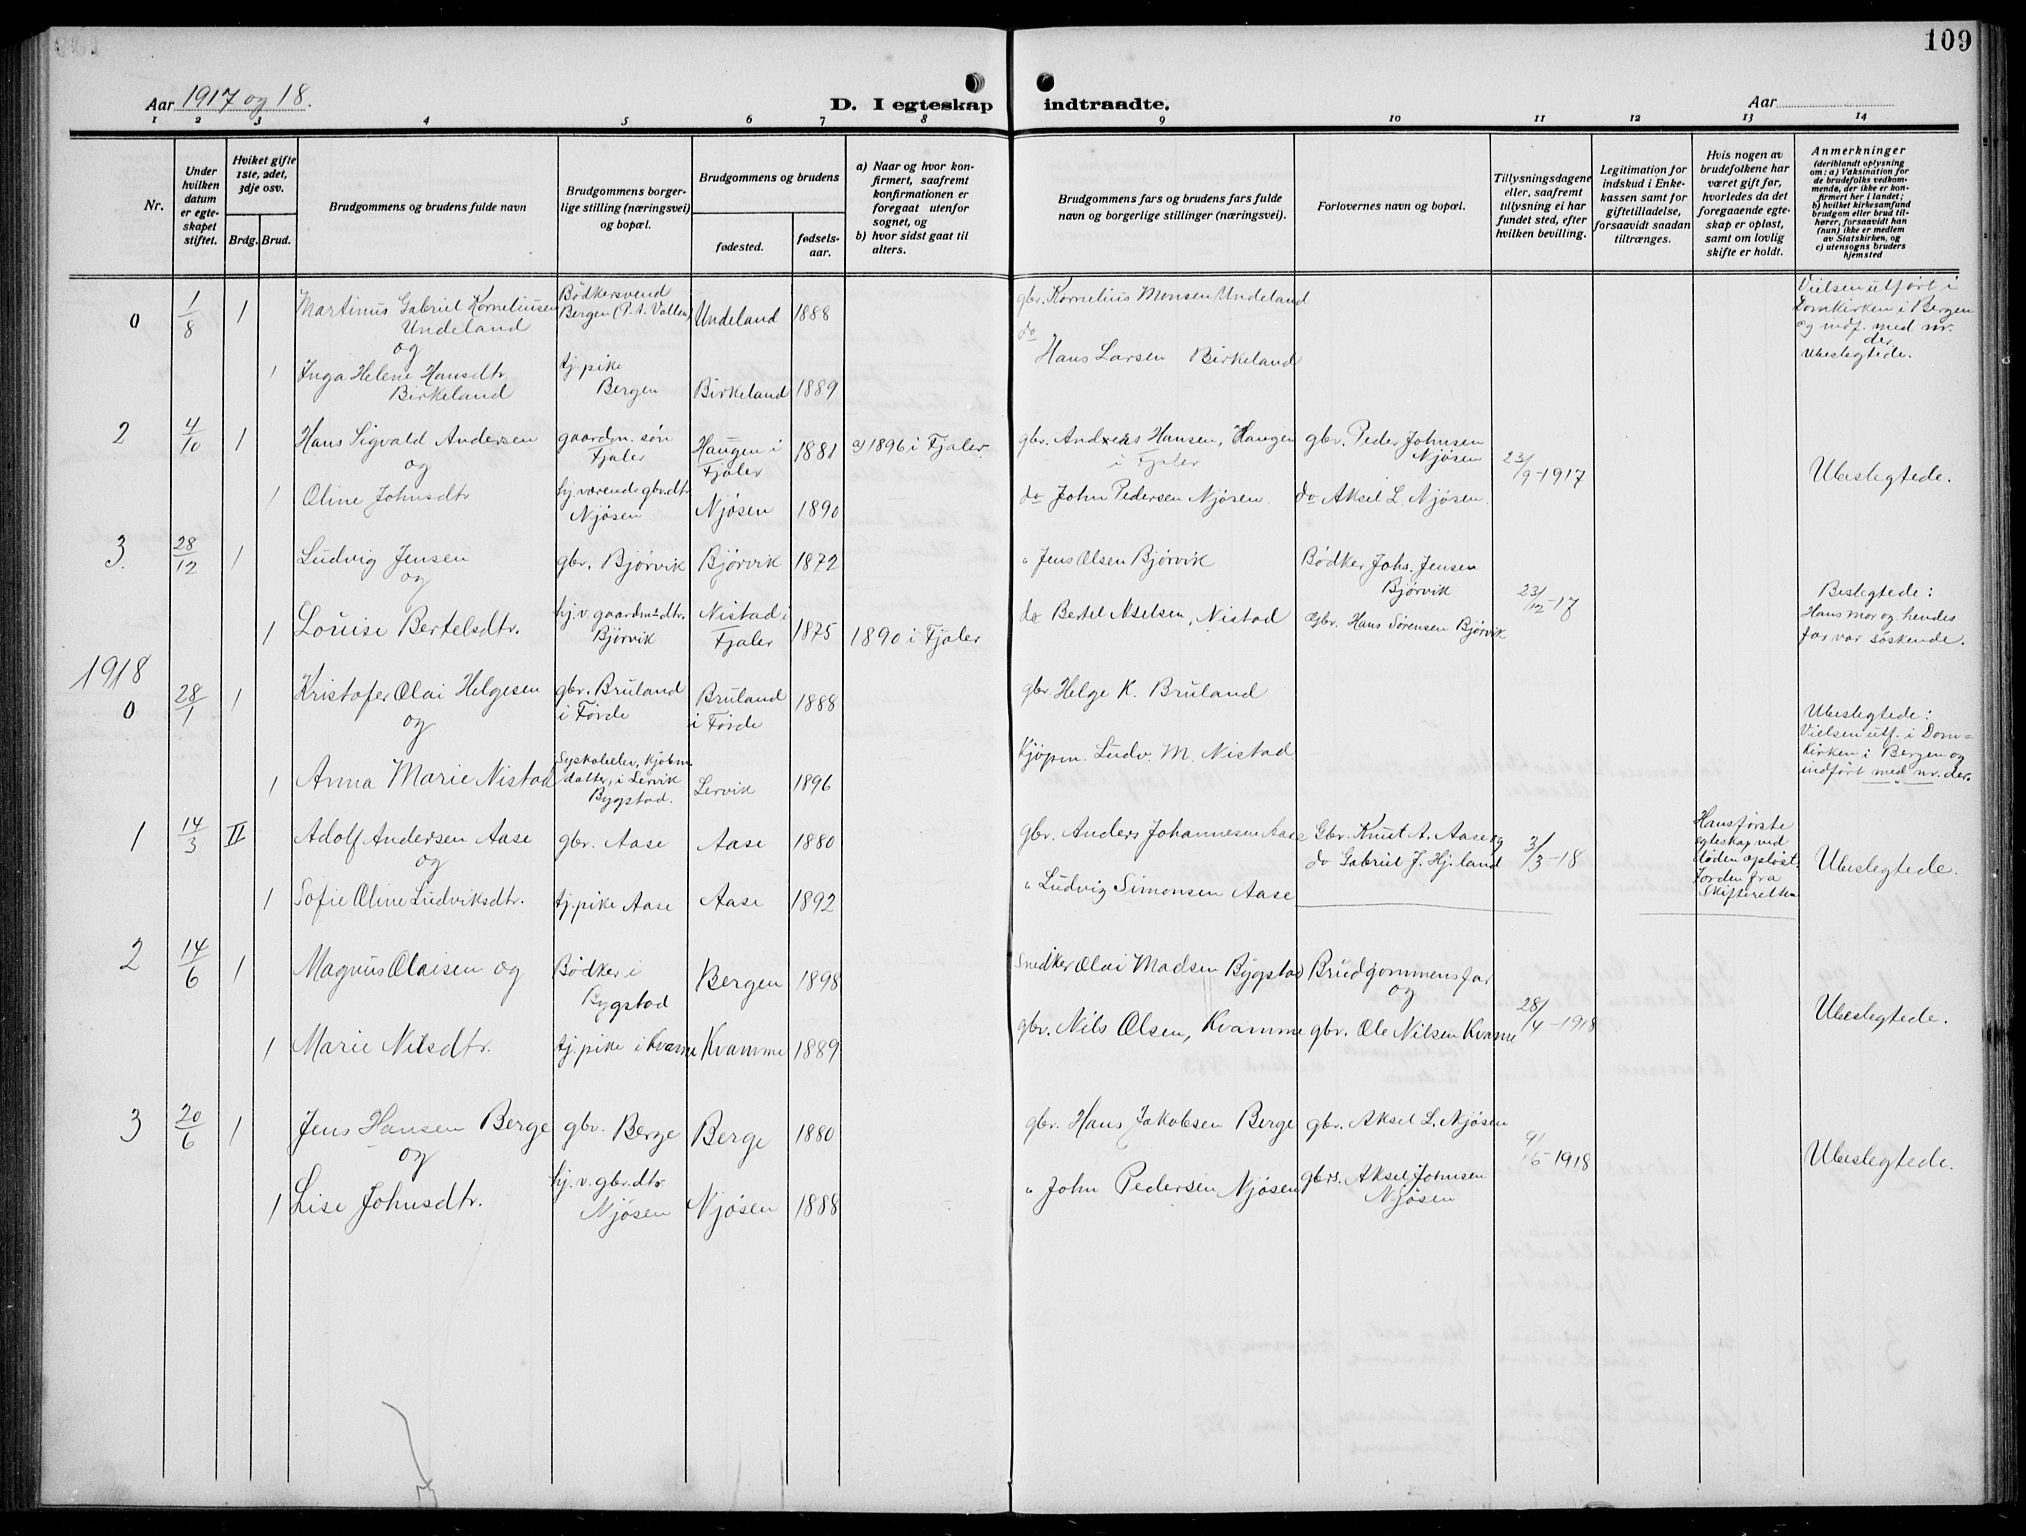 109
Aar 1917 og 18.
D. I egteskap indtraadte.
Aar
1 2 3 4 5 6 7 8 9 10 11 12 13 14
Nr.
Under hvilken datum er egteskapet stiftet.
Hviket gifte 1ste, 2det, 3dje osv.
Brdg. Brud.
Brudgommens og brudens fulde navn
Brudgommens borgerlige stilling (næringsvei) og bopæl.
Brudgommens og brudens
fødested.
fødselsaar.
a) Naar og hvor konfirmert, saafremt konfirmationen er foregaat utenfor sognet, og
b) hvor sidst gaat til alters.
Brudgommens fars og brudens fars fulde navn og borgerlige stillinger (næringsvei).
Forlovernes navn og bopæl.
Tillysningsdagene eller, saafremt tillysning ei har fundet sted, efter hvilken bevilling.
Legitimation for indskud i Enkekassen samt for giftetilladelse, forsaavidt saadan tiltrænges.
Hvis nogen av brudefolkene har været gift før, hvorledes da det foregaaende egteskap er opløst, samt om lovlig skifte er holdt.
Anmerkninger
(deriblandt oplysning om: a) Vaksination for de brudefolks vedkommende, der ikke er konfirmert her i landet;
b) hvilket kirkesamfund brudgom eller brud tilhører, forsaavidt han (hun) ikke er medlem av Statskirken, og
c) utensogns bruders hjemsted
0 1/8 1 Martinus Gabriel Korneliusen Undeland og Bødkersvend Bergen (P. A. Vallen) Undeland 1888 gbr. Kornelius Monsen Undeland
1 Inga Helene Hansdtr. Birkeland tj.pike Bergen Birkeland 1889 do Hans Larsen Birkeland
Vielsen utført i Domkirken i Bergen og indf. med nr. der Ubeslegtede.
2 4/10 1 Hans Sigvald Andersen og gaardm. søn Fjaler Haugen i Fjaler 1881 a) 1896 i Fjaler. gbr. Andreas Hansen, Haugen i Fjaler gbr. Peder Johnsen Njøsen 23/9-1917 Ubeslegtede.
1 Oline Johnsdtr hj.værende gbr.dtr Njøsen Njøsen 1890 do John Pedersen Njøsen. do Aksel L. Njøsen.
3. 28/12 1 Ludvig Jensen og gbr. Bjørvik Bjørvik 1872 " Jens Olsen Bjørvik Bødker Johs. Jensen Bjørvik 23/12-17
1 Louise Bertelsdtr. hj.v. gaardm. dtr. Bjørvik Nistad i Fjaler 1875 1890 i Fjaler do Bertel Nielsen, Nistad Gbr. Hans Sørensen Bjørvik
Beslegtede: Hans mor og hendes far var søskende.
1918
0 28/1 1 Kristofer Olai Helgesen og gbr. Bruland i Førde Bruland i Førde 1888 gbr Helge K. Bruland
1 Anna Marie Nistad datter, i Lervik Bygstad. Lervik 1896 Kjøpm. Ludv. M. Nistad
Ubeslegtede: Vielsen utf. i Domkirken i Bergen og indført med nr. der.
1 14/3 II Adolf Andersen Aase og gbr. Aase Aase 1880 gbr. Anders Johannesen Aase Gbr. Knut A. Aase og 3/3-18 Hans første egteskap ved døden opløst. Ubeslegtede.
1 Sofie Oline Ludviksdtr. tj.pike Aase Aase 1892 " Ludvig Simonsen Aase do Gabriel J. Hj.land fra Skifteretten
2 14/6 1 Magnus Olaisen og Bødker i Bygstad Bergen 1898 Snedker Olai Madsen Bygstad Brudgommens far og 28/4-1918 Ubeslegtede.
1 Marie Nilsdtr. tj.pike i Kvamme Kvamme 1889 gbr. Nils Olsen, Kvamme gbr. Ole Nilsen Kvamme
3 20/6 1 Jens Hansen Berge og gbr. Berge Berge 1880 gbr. Hans Jakobsen Berge gbr. Aksel L. Njøsen 9/6-1918 Ubeslegtede.
1 Lise Johnsdtr. hj.v.gbr.dtr. Njøsen Njøsen 1888 " John Pedersen Njøsen gbrs. Aksel Johnsen Njøsen